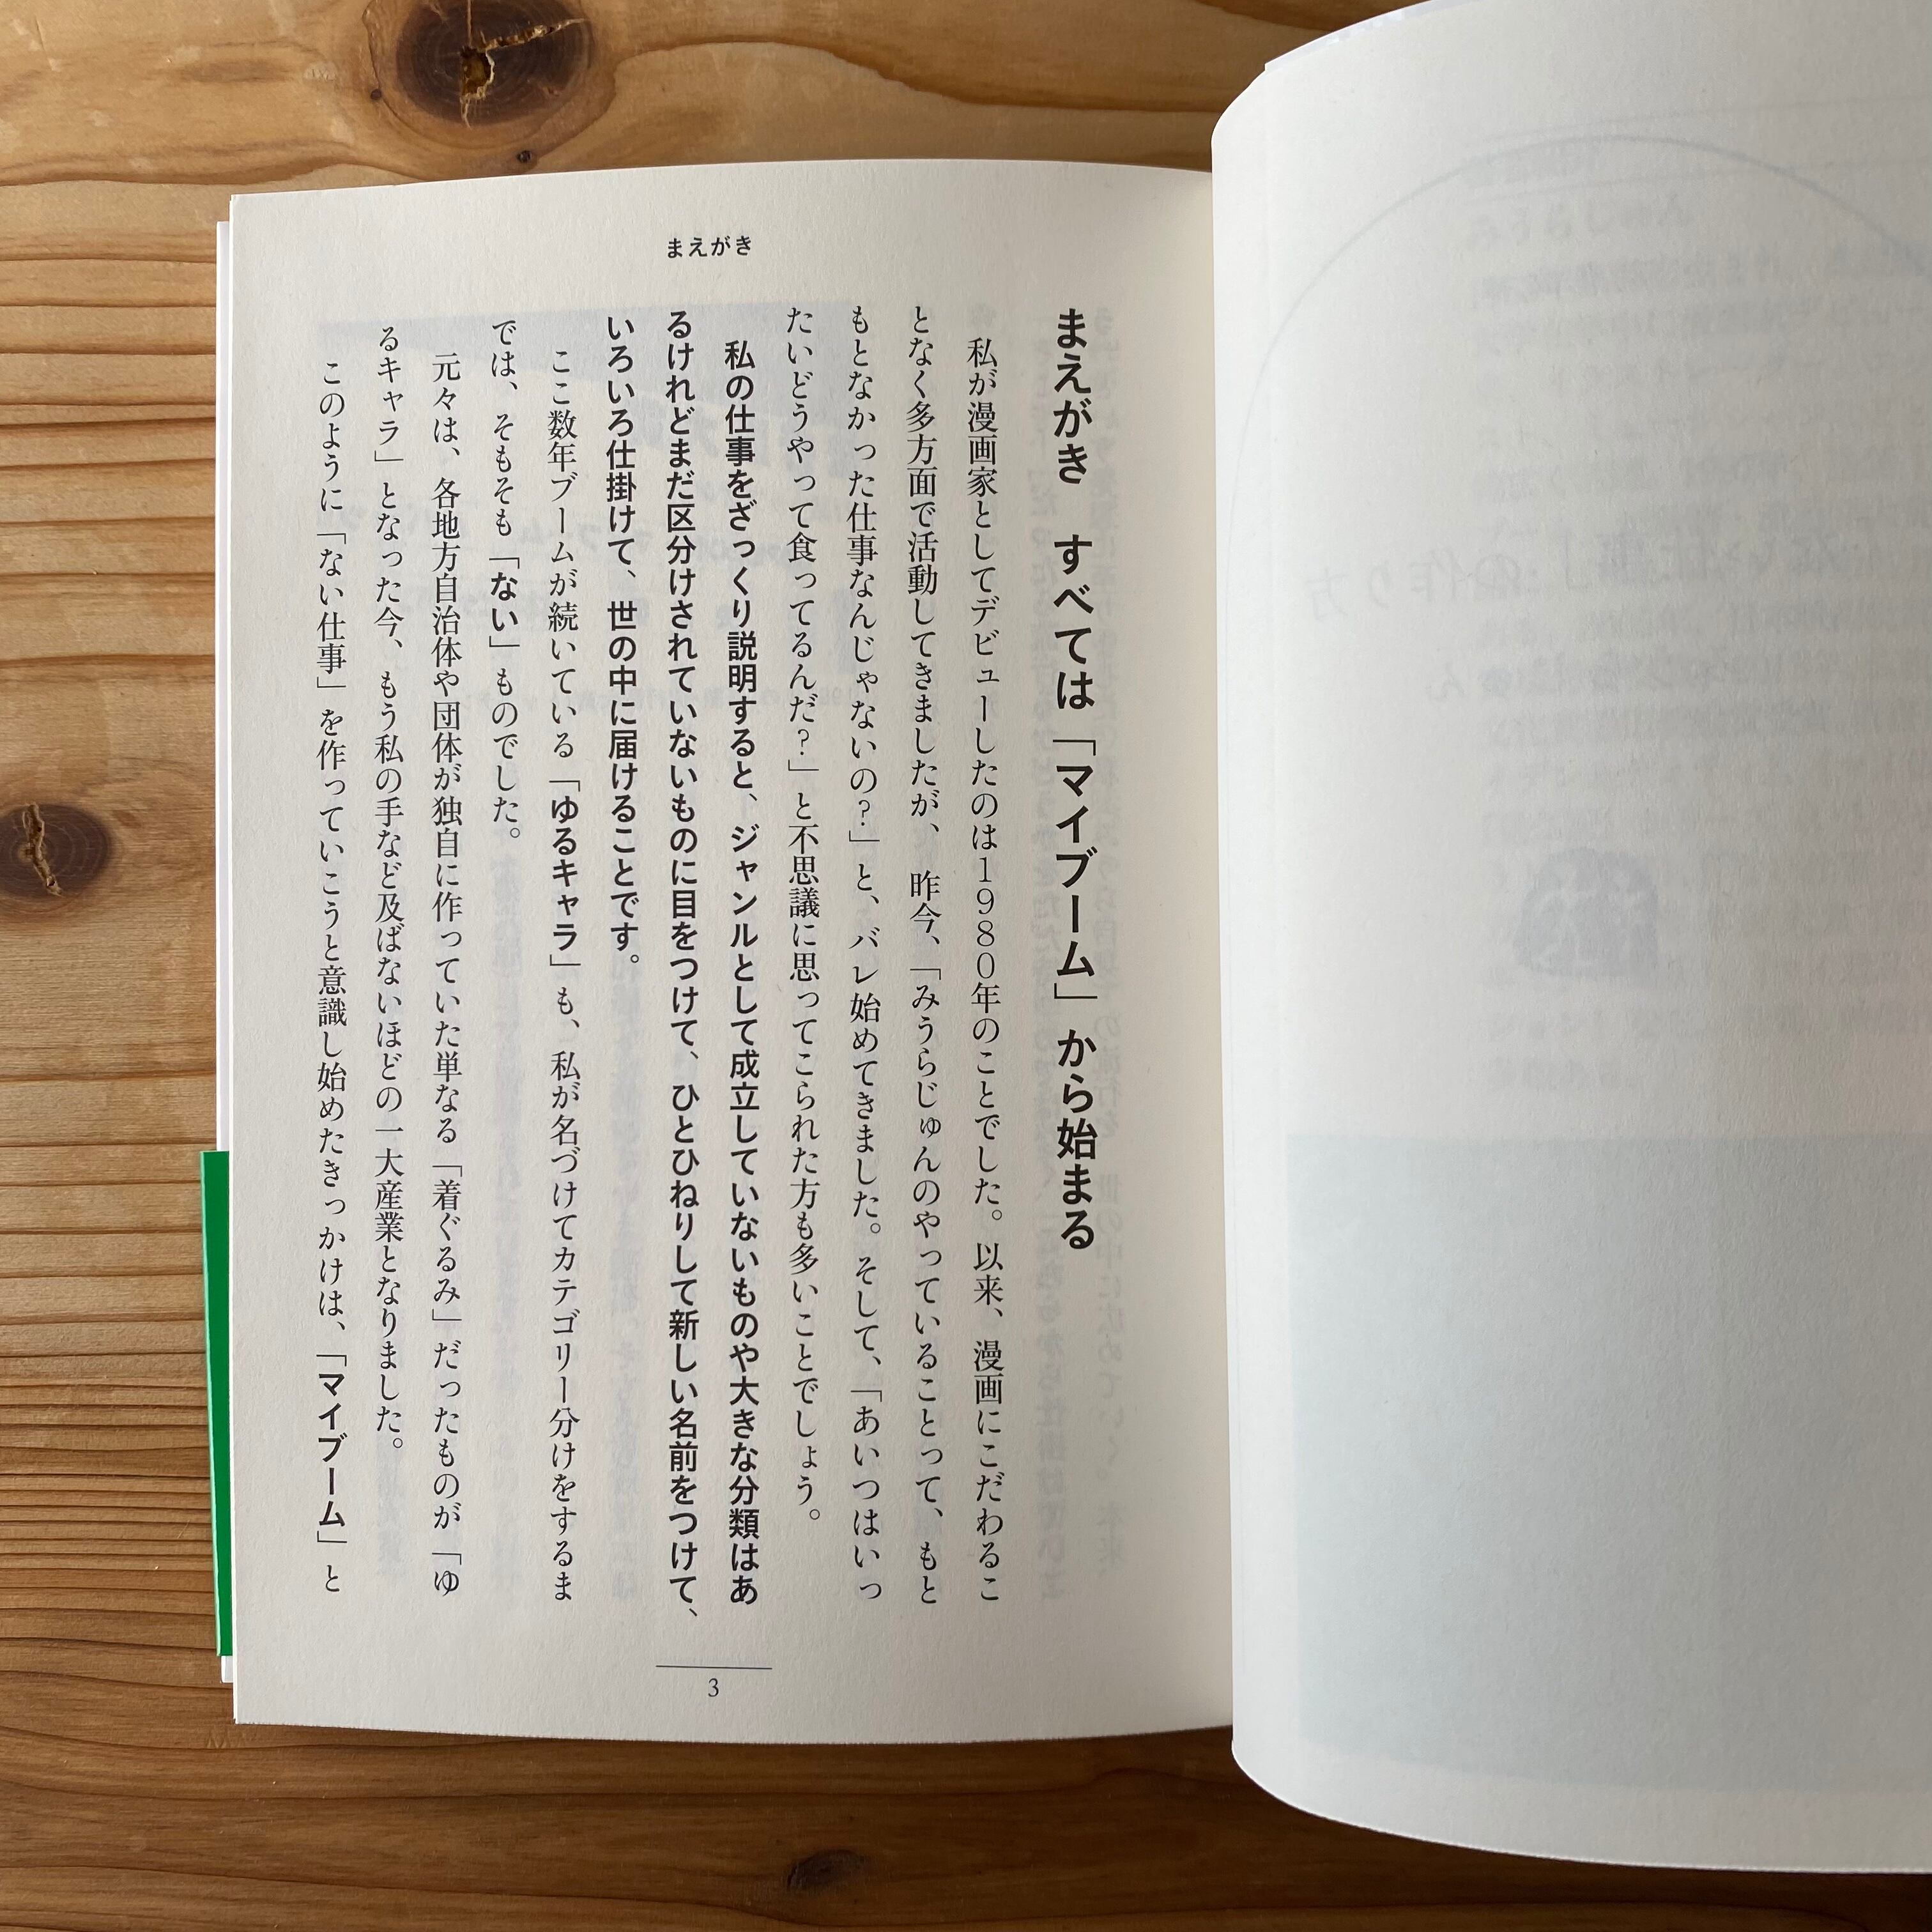 まえがき
まえがき　すべては「マイブーム」から始まる
私が漫画家としてデビューしたのは1980年のことでした。以来、漫画にこだわるこ
となく多方面で活動してきましたが、昨今、「みうらじゅんのやっていることって、もと
もとなかった仕事なんじゃないの？」と、バレ始めてきました。そして、「あいつはいっ
たいどうやって食ってるんだ？」と不思議に思ってこられた方も多いことでしょう。
私の仕事をざっくり説明すると、ジャンルとして成立していないものや大きな分類はあ
るけれどまだ区分けされていないものに目をつけて、ひとひねりして新しい名前をつけて、
いろいろ仕掛けて、世の中に届けることです。
ここ数年ブームが続いている「ゆるキャラ」も、私が名づけてカテゴリー分けをするま
では、そもそも「ない」ものでした。
元々は、各地方自治体や団体が独自に作っていた単なる「着ぐるみ」だったものが「ゆ
るキャラ」となった今、もう私の手など及ばないほどの一大産業となりました。
このように「ない仕事」を作っていこうと意識し始めたきっかけは、「マイブーム」と
3